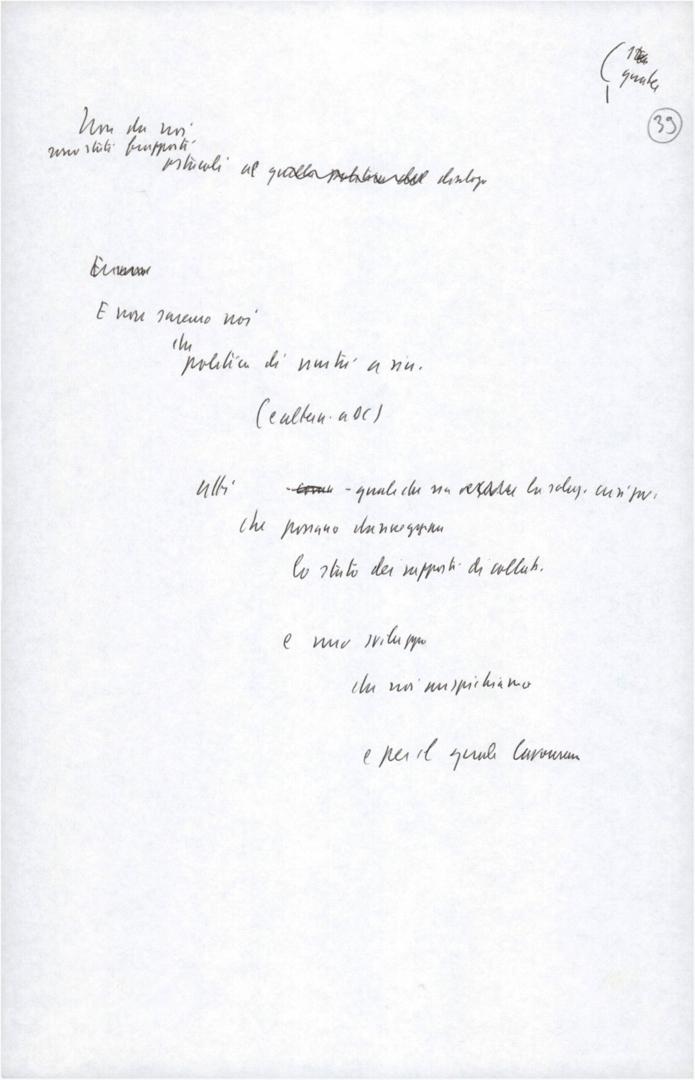 39
Non da noi
sono stati frapposti
ostacoli al dialogo
E non saremo noi
che
politica di a sin.
(e altern. a DC)
atti - quale che sia la soluz. crisi gov.
che possano danneggiare
lo stato dei rapporti di collab.
e uno sviluppo
che noi auspichiamo
e per il quale lavoriamo